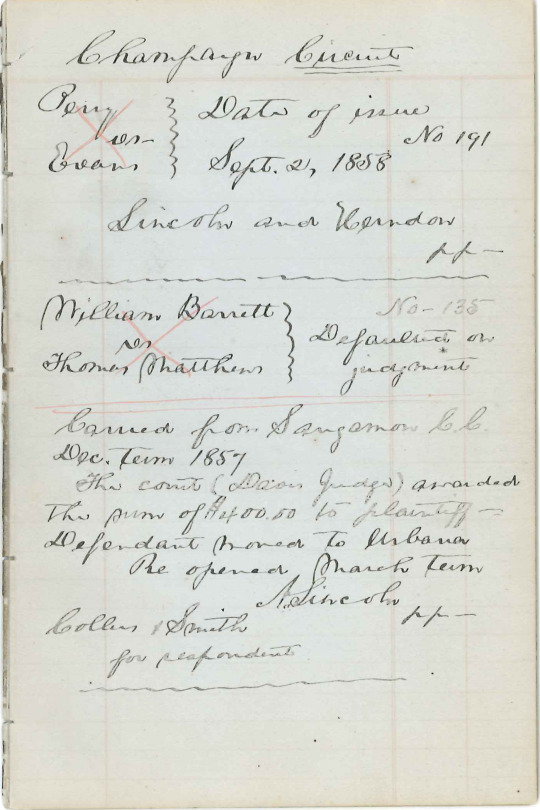 Champaign Circuit
Perry
vs
Evans
Date of issue
No 191
Sept. 2, 1858
Lincoln and Herndon
pp —
William Barrett
vs
Thomas Matthews
No - 135
Defaulted on
judgment
Carried from Sangamon C.C.
Dec. term 1857
The court (Davis Judge) awarded
the sum of $400.00 to plaintiff —
Defendant moved to Urbana
Re opened March term
A. Lincoln
pp —
Collins & Smith
for respondent